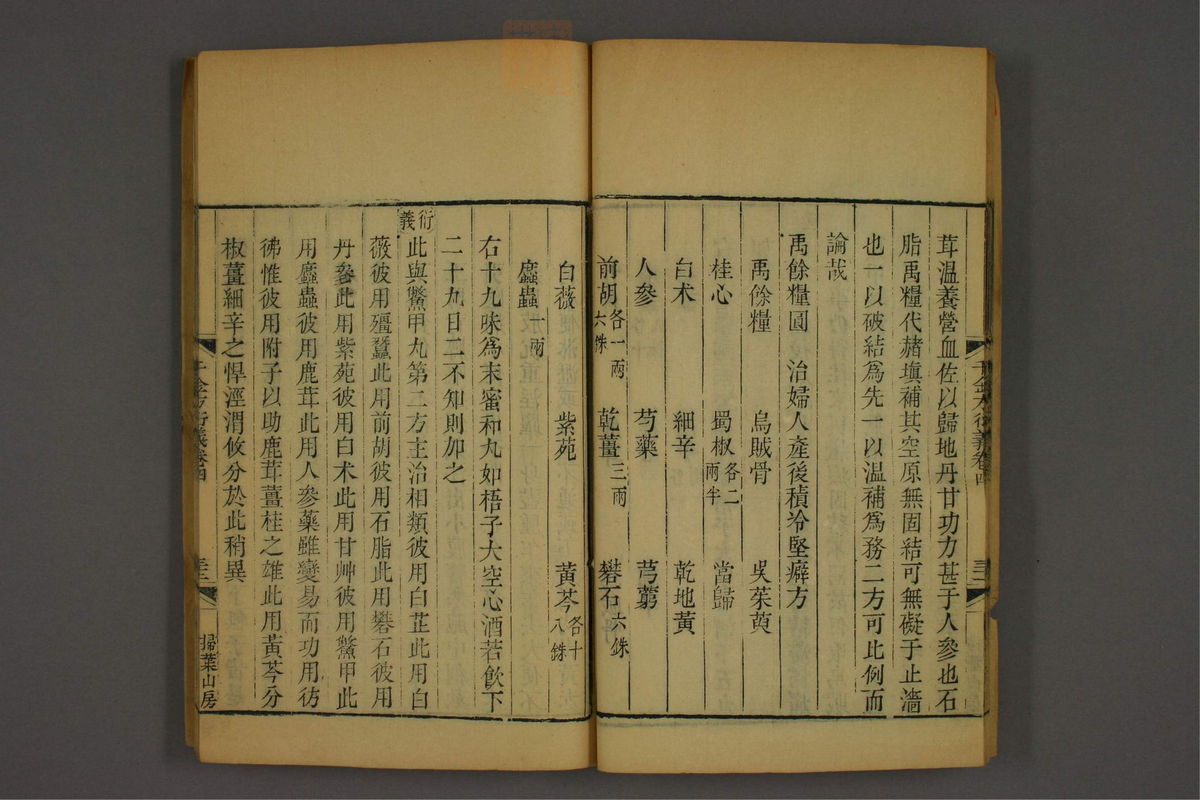 茸温養營血佐以歸地丹甘功力甚于人參也石
脂禹糧代赭塡補其空原無固結可無礙于止濇
也一以破結爲先一以温補爲務二方可比例而
論哉
禹餘糧圓　治婦人產後積冷堅癖方
禹餘糧　烏賊骨　吳茱萸
桂心　蜀椒各二兩半　當歸
白术　細辛　乾地黃
人參　芍藥　芎藭
前胡各一兩六銖　乾薑三兩　礬石六銖
白薇　紫苑　黃芩各十八銖
䗪蟲一兩
右十九味爲末蜜和丸如梧子大空心酒若飲下
二十九日二不知則加之
衍義此與鱉甲丸第二方主治相類彼用白芷此用白
薇彼用殭蠶此用前胡彼用石脂此用礬石彼用
丹參此用紫苑彼用白术此用甘艸彼用鱉甲此
用䗪蟲彼用鹿茸此用人參藥雖變易而功用彷
彿惟彼用附子以助鹿茸薑桂之雄此用黃芩分
椒薑細辛之悍涇渭攸分於此稍異
千金方衍義卷四
掃葉山房